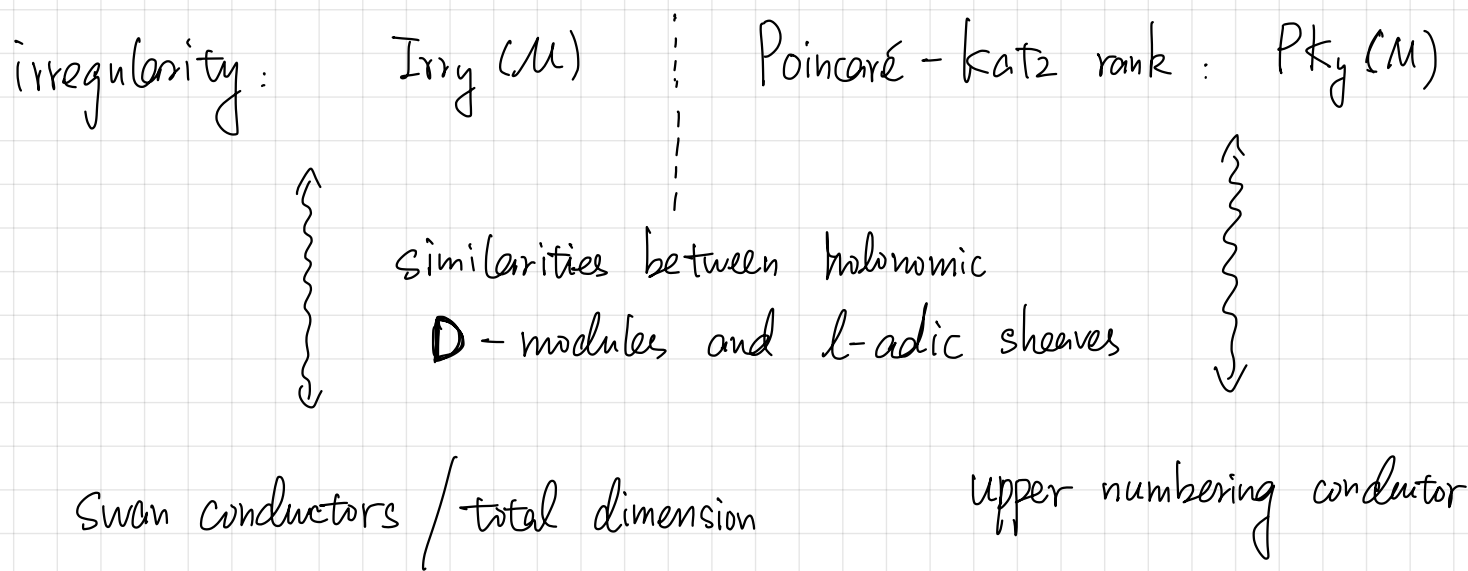 irregularity: Irr_y (M) Poincaré - Katz rank : PK_y (M)
similarities between holonomic
D - modules and l-adic sheaves
Swan conductors / total dimension upper numbering conductor